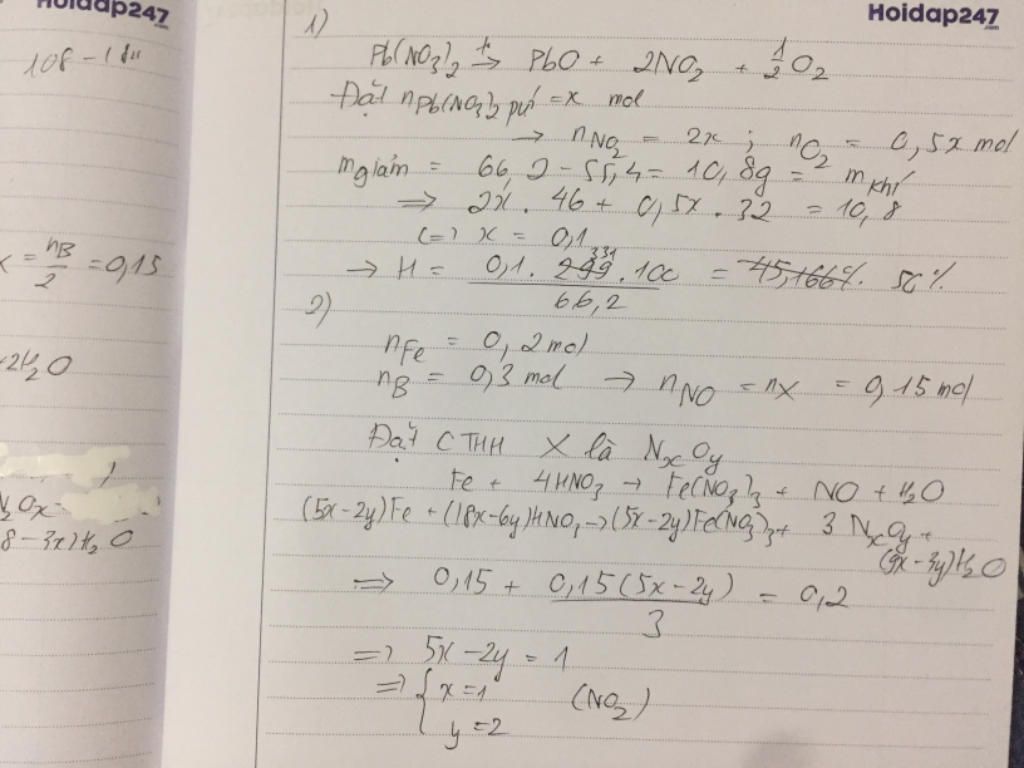 Hoidap247
.com
108 - 18n
x = nB/2 = 0,15
+2H₂O
N₂Ox
8 - 3x)H₂O
Hoidap247
.com
1)
Pb(NO₃)₂ t°→ PbO + 2NO₂ + 1/2 O₂
Đặt nPb(NO₃)₂ pứ = x mol
→ nNO₂ = 2x ; nO₂ = 0,5x mol
mgiảm = 66,2 - 55,4 = 10,8g = mkhí
⇒ 2x . 46 + 0,5x . 32 = 10,8
(=) x = 0,1
→ H = 0,1 . 299 331 . 100 / 66,2 = 45,166% 50%
2)
nFe = 0,2 mol
nB = 0,3 mol → nNO = nX = 0,15 mol
Đặt CTHH X là NxOy
Fe + 4HNO₃ → Fe(NO₃)₃ + NO + H₂O
(5x-2y)Fe + (18x-6y)HNO₃ → (5x-2y)Fe(NO₃)₃ + 3 NxOy +
(9x-3y)H₂O
⇒ 0,15 + 0,15(5x-2y)/3 = 0,2
⇒ 5x - 2y = 1
⇒ { x = 1 (NO₂)
y = 2